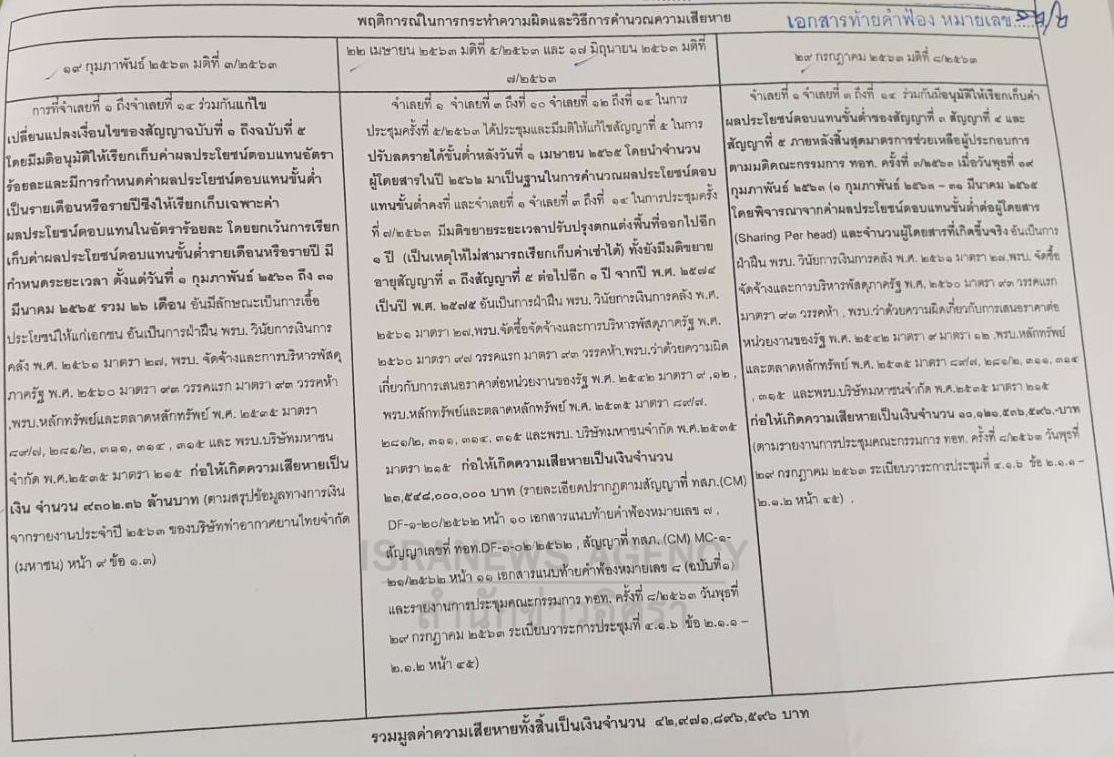 พฤติการณ์ในการกระทำความผิดและวิธีการคำนวณความเสียหาย
เอกสารท้ายคำฟ้อง หมายเลข
๑๙ กุมภาพันธ์ ๒๕๖๓ มติที่ ๓/๒๕๖๓
การที่จำเลยที่ ๑ ถึงจำเลยที่ ๑๔ ร่วมกันแก้ไข
เปลี่ยนแปลงเงื่อนไขของสัญญาฉบับที่ ๑ ถึงฉบับที่ ๕
โดยมีมติอนุมัติให้เรียกเก็บค่าผลประโยชน์ตอบแทนอัตรา
ร้อยละและมีการกำหนดค่าผลประโยชน์ตอบแทนขั้นต่ำ
เป็นรายเดือนหรือรายปีซึ่งให้เรียกเก็บเฉพาะค่า
ผลประโยชน์ตอบแทนในอัตราร้อยละ โดยยกเว้นการเรียก
เก็บค่าผลประโยชน์ตอบแทนขั้นต่ำรายเดือนหรือรายปี มี
กำหนดระยะเวลา ตั้งแต่วันที่ ๑ กุมภาพันธ์ ๒๕๖๓ ถึง ๓๑
มีนาคม ๒๕๖๕ รวม ๒๖ เดือน อันมีลักษณะเป็นการเอื้อ
ประโยชน์ให้แก่เอกชน อันเป็นการฝ่าฝืน พรบ. วินัยการเงินการ
คลัง พ.ศ. ๒๕๖๑ มาตรา ๒๗, พรบ. จัดจ้างและการบริหารพัสดุ
ภาครัฐ พ.ศ. ๒๕๖๐ มาตรา ๙๓ วรรคแรก มาตรา ๙๓ วรรคห้า
,พรบ.หลักทรัพย์และตลาดหลักทรัพย์ พ.ศ. ๒๕๓๕ มาตรา
๘๙/๗, ๒๘๑/๒, ๓๑๑, ๓๑๔ , ๓๑๕ และ พรบ.บริษัทมหาชน
จำกัด พ.ศ.๒๕๓๕ มาตรา ๒๑๕ ก่อให้เกิดความเสียหายเป็น
เงิน จำนวน ๙๓๐๒.๓๖ ล้านบาท (ตามสรุปข้อมูลทางการเงิน
จากรายงานประจำปี ๒๕๖๓ ของบริษัทท่าอากาศยานไทยจำกัด
(มหาชน) หน้า ๙ ข้อ ๑.๓)
๒๒ เมษายน ๒๕๖๓ มติที่ ๕/๒๕๖๓ และ ๑๗ มิถุนายน ๒๕๖๓ มติที่
๗/๒๕๖๓
จำเลยที่ ๑ จำเลยที่ ๓ ถึงที่ ๑๐ จำเลยที่ ๑๒ ถึงที่ ๑๔ ในการ
ประชุมครั้งที่ ๕/๒๕๖๓ ได้ประชุมและมีมติให้แก้ไขสัญญาที่ ๕ ในการ
ปรับลดรายได้ขั้นต่ำหลังวันที่ ๑ เมษายน ๒๕๖๕ โดยนำจำนวน
ผู้โดยสารในปี ๒๕๖๒ มาเป็นฐานในการคำนวณผลประโยชน์ตอบ
แทนขั้นต่ำคงที่ และจำเลยที่ ๑ จำเลยที่ ๓ ถึงที่ ๑๔ ในการประชุมครั้ง
ที่ ๗/๒๕๖๓ มีมติขยายระยะเวลาปรับปรุงตกแต่งพื้นที่ออกไปอีก
๑ ปี (เป็นเหตุให้ไม่สามารถเรียกเก็บค่าเช่าได้) ทั้งยังมีมติขยาย
อายุสัญญาที่ ๓ ถึงสัญญาที่ ๕ ต่อไปอีก ๑ ปี จากปี พ.ศ. ๒๕๗๔
เป็นปี พ.ศ. ๒๕๗๕ อันเป็นการฝ่าฝืน พรบ. วินัยการเงินการคลัง พ.ศ.
๒๕๖๑ มาตรา ๒๗,พรบ.จัดซื้อจัดจ้างและการบริหารพัสดุภาครัฐ พ.ศ.
๒๕๖๐ มาตรา ๙๗ วรรคแรก มาตรา ๙๓ วรรคห้า,พรบ.ว่าด้วยความผิด
เกี่ยวกับการเสนอราคาต่อหน่วยงานของรัฐ พ.ศ. ๒๕๔๒ มาตรา ๙ ,๑๒ ,
พรบ.หลักทรัพย์และตลาดหลักทรัพย์ พ.ศ. ๒๕๓๕ มาตรา ๘๙/๗,
๒๘๑/๒, ๓๑๑, ๓๑๔, ๓๑๕ และพรบ. บริษัทมหาชนจำกัด พ.ศ.๒๕๓๕
มาตรา ๒๑๕ ก่อให้เกิดความเสียหายเป็นเงินจำนวน
๒๓,๕๔๘,๐๐๐,๐๐๐ บาท (รายละเอียดปรากฏตามสัญญาที่ ทสภ.(CM)
DF-๑-๒๐/๒๕๖๒ หน้า ๑๐ เอกสารแนบท้ายคำฟ้องหมายเลข ๗ ,
สัญญาเลขที่ ทอท.DF-๑-๐๒/๒๕๖๒ , สัญญาที่ ทสภ. (CM) MC-๑-
๒๑/๒๕๖๒ หน้า ๑๑ เอกสารแนบท้ายคำฟ้องหมายเลข ๘ (ฉบับที่๑)
และรายงานการประชุมคณะกรรมการ ทอท. ครั้งที่ ๘/๒๕๖๓ วันพุธที่
๒๙ กรกฎาคม ๒๕๖๓ ระเบียบวาระการประชุมที่ ๔.๑.๖ ข้อ ๒.๑.๑ –
๒.๑.๒ หน้า ๔๕)
๒๙ กรกฎาคม ๒๕๖๓ มติที่ ๘/๒๕๖๓
จำเลยที่ ๑ จำเลยที่ ๓ ถึงที่ ๑๔ ร่วมกันมีอนุมัติให้เรียกเก็บค่า
ผลประโยชน์ตอบแทนขั้นต่ำของสัญญาที่ ๓ สัญญาที่ ๔ และ
สัญญาที่ ๕ ภายหลังสิ้นสุดมาตรการช่วยเหลือผู้ประกอบการ
ตามมติคณะกรรมการ ทอท. ครั้งที่ ๓/๒๕๖๓ เมื่อวันพุธที่ ๑๙
กุมภาพันธ์ ๒๕๖๓ (๑ กุมภาพันธ์ ๒๕๖๓ – ๓๑ มีนาคม ๒๕๖๕
โดยพิจารณาจากค่าผลประโยชน์ตอบแทนขั้นต่ำต่อผู้โดยสาร
(Sharing Per head) และจำนวนผู้โดยสารที่เกิดขึ้นจริง อันเป็นการ
ฝ่าฝืน พรบ. วินัยการเงินการคลัง พ.ศ. ๒๕๖๑ มาตรา ๒๗,พรบ. จัดซื้อ
จัดจ้างและการบริหารพัสดุภาครัฐ พ.ศ. ๒๕๖๐ มาตรา ๙๓ วรรคแรก
มาตรา ๙๓ วรรคห้า , พรบ.ว่าด้วยความผิดเกี่ยวกับการเสนอราคาต่อ
หน่วยงานของรัฐ พ.ศ. ๒๕๔๒ มาตรา ๙ มาตรา ๑๒ ,พรบ.หลักทรัพย์
และตลาดหลักทรัพย์ พ.ศ. ๒๕๓๕ มาตรา ๘๙/๗, ๒๘๑/๒, ๓๑๑, ๓๑๔
, ๓๑๕ และพรบ.บริษัทมหาชนจำกัด พ.ศ.๒๕๓๕ มาตรา ๒๑๕
ก่อให้เกิดความเสียหายเป็นเงินจำนวน ๑๐,๑๒๑,๕๓๖,๕๙๖,-บาท
(ตามรายงานการประชุมคณะกรรมการ ทอท. ครั้งที่ ๘/๒๕๖๓ วันพุธที่
๒๙ กรกฎาคม ๒๕๖๓ ระเบียบวาระการประชุมที่ ๔.๑.๖ ข้อ ๒.๑.๑ –
๒.๑.๒ หน้า ๔๕) .
ISRANEWS AGENCY
สำนักข่าวอิศรา
รวมมูลค่าความเสียหายทั้งสิ้นเป็นเงินจำนวน ๔๒,๙๗๑,๘๙๖,๕๙๖ บาท